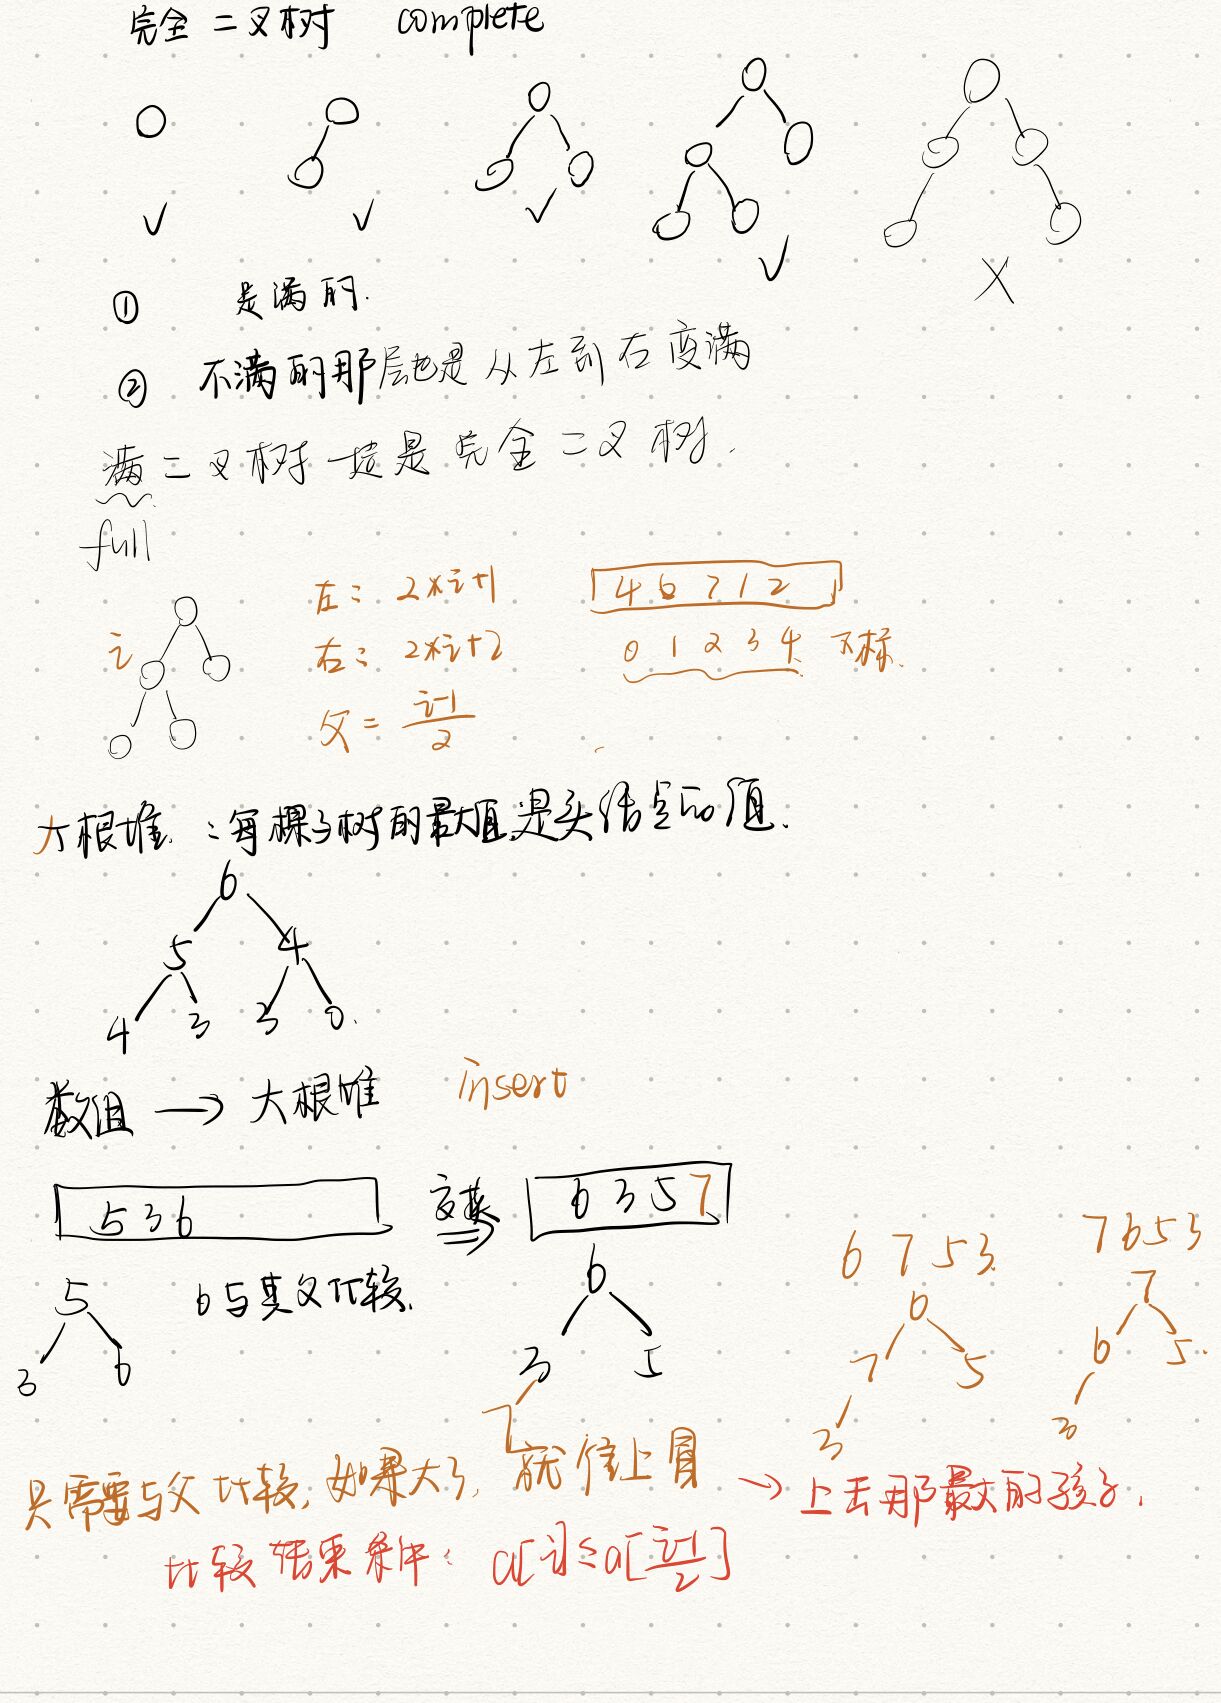 完全二叉树 complete
① 是满的.
② 不满的那层也是从左到右变满
满二叉树一定是完全二叉树.
full
i
左: 2*i+1
右: 2*i+2
父 = i-1 / 2
4 6 7 1 2
0 1 2 3 4 下标.
大根堆: 每棵子树的最大值是头结点的值.
6
5 4
4 3 3 0
数组 → 大根堆 insert
5 3 6 交换 ⇒ 6 3 5 7
6 7 5 3 7 6 5 3
5 6与其父比较. 6 6 7
3 6 3 5 7 5 6 5
7 3 3
只需要与父比较, 如果大了, 就往上冒 → 上去那最大的孩子.
比较结束条件: a[i] ≤ a[i-1 / 2]